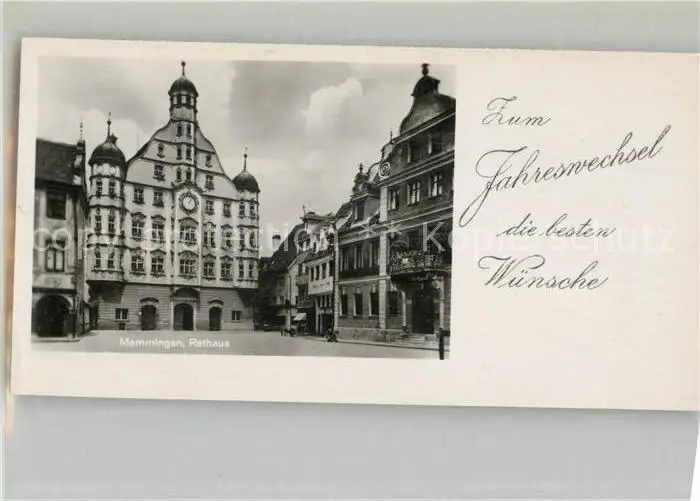 Memmingen, Rathaus
Zum
Jahreswechsel
die besten
Wünsche